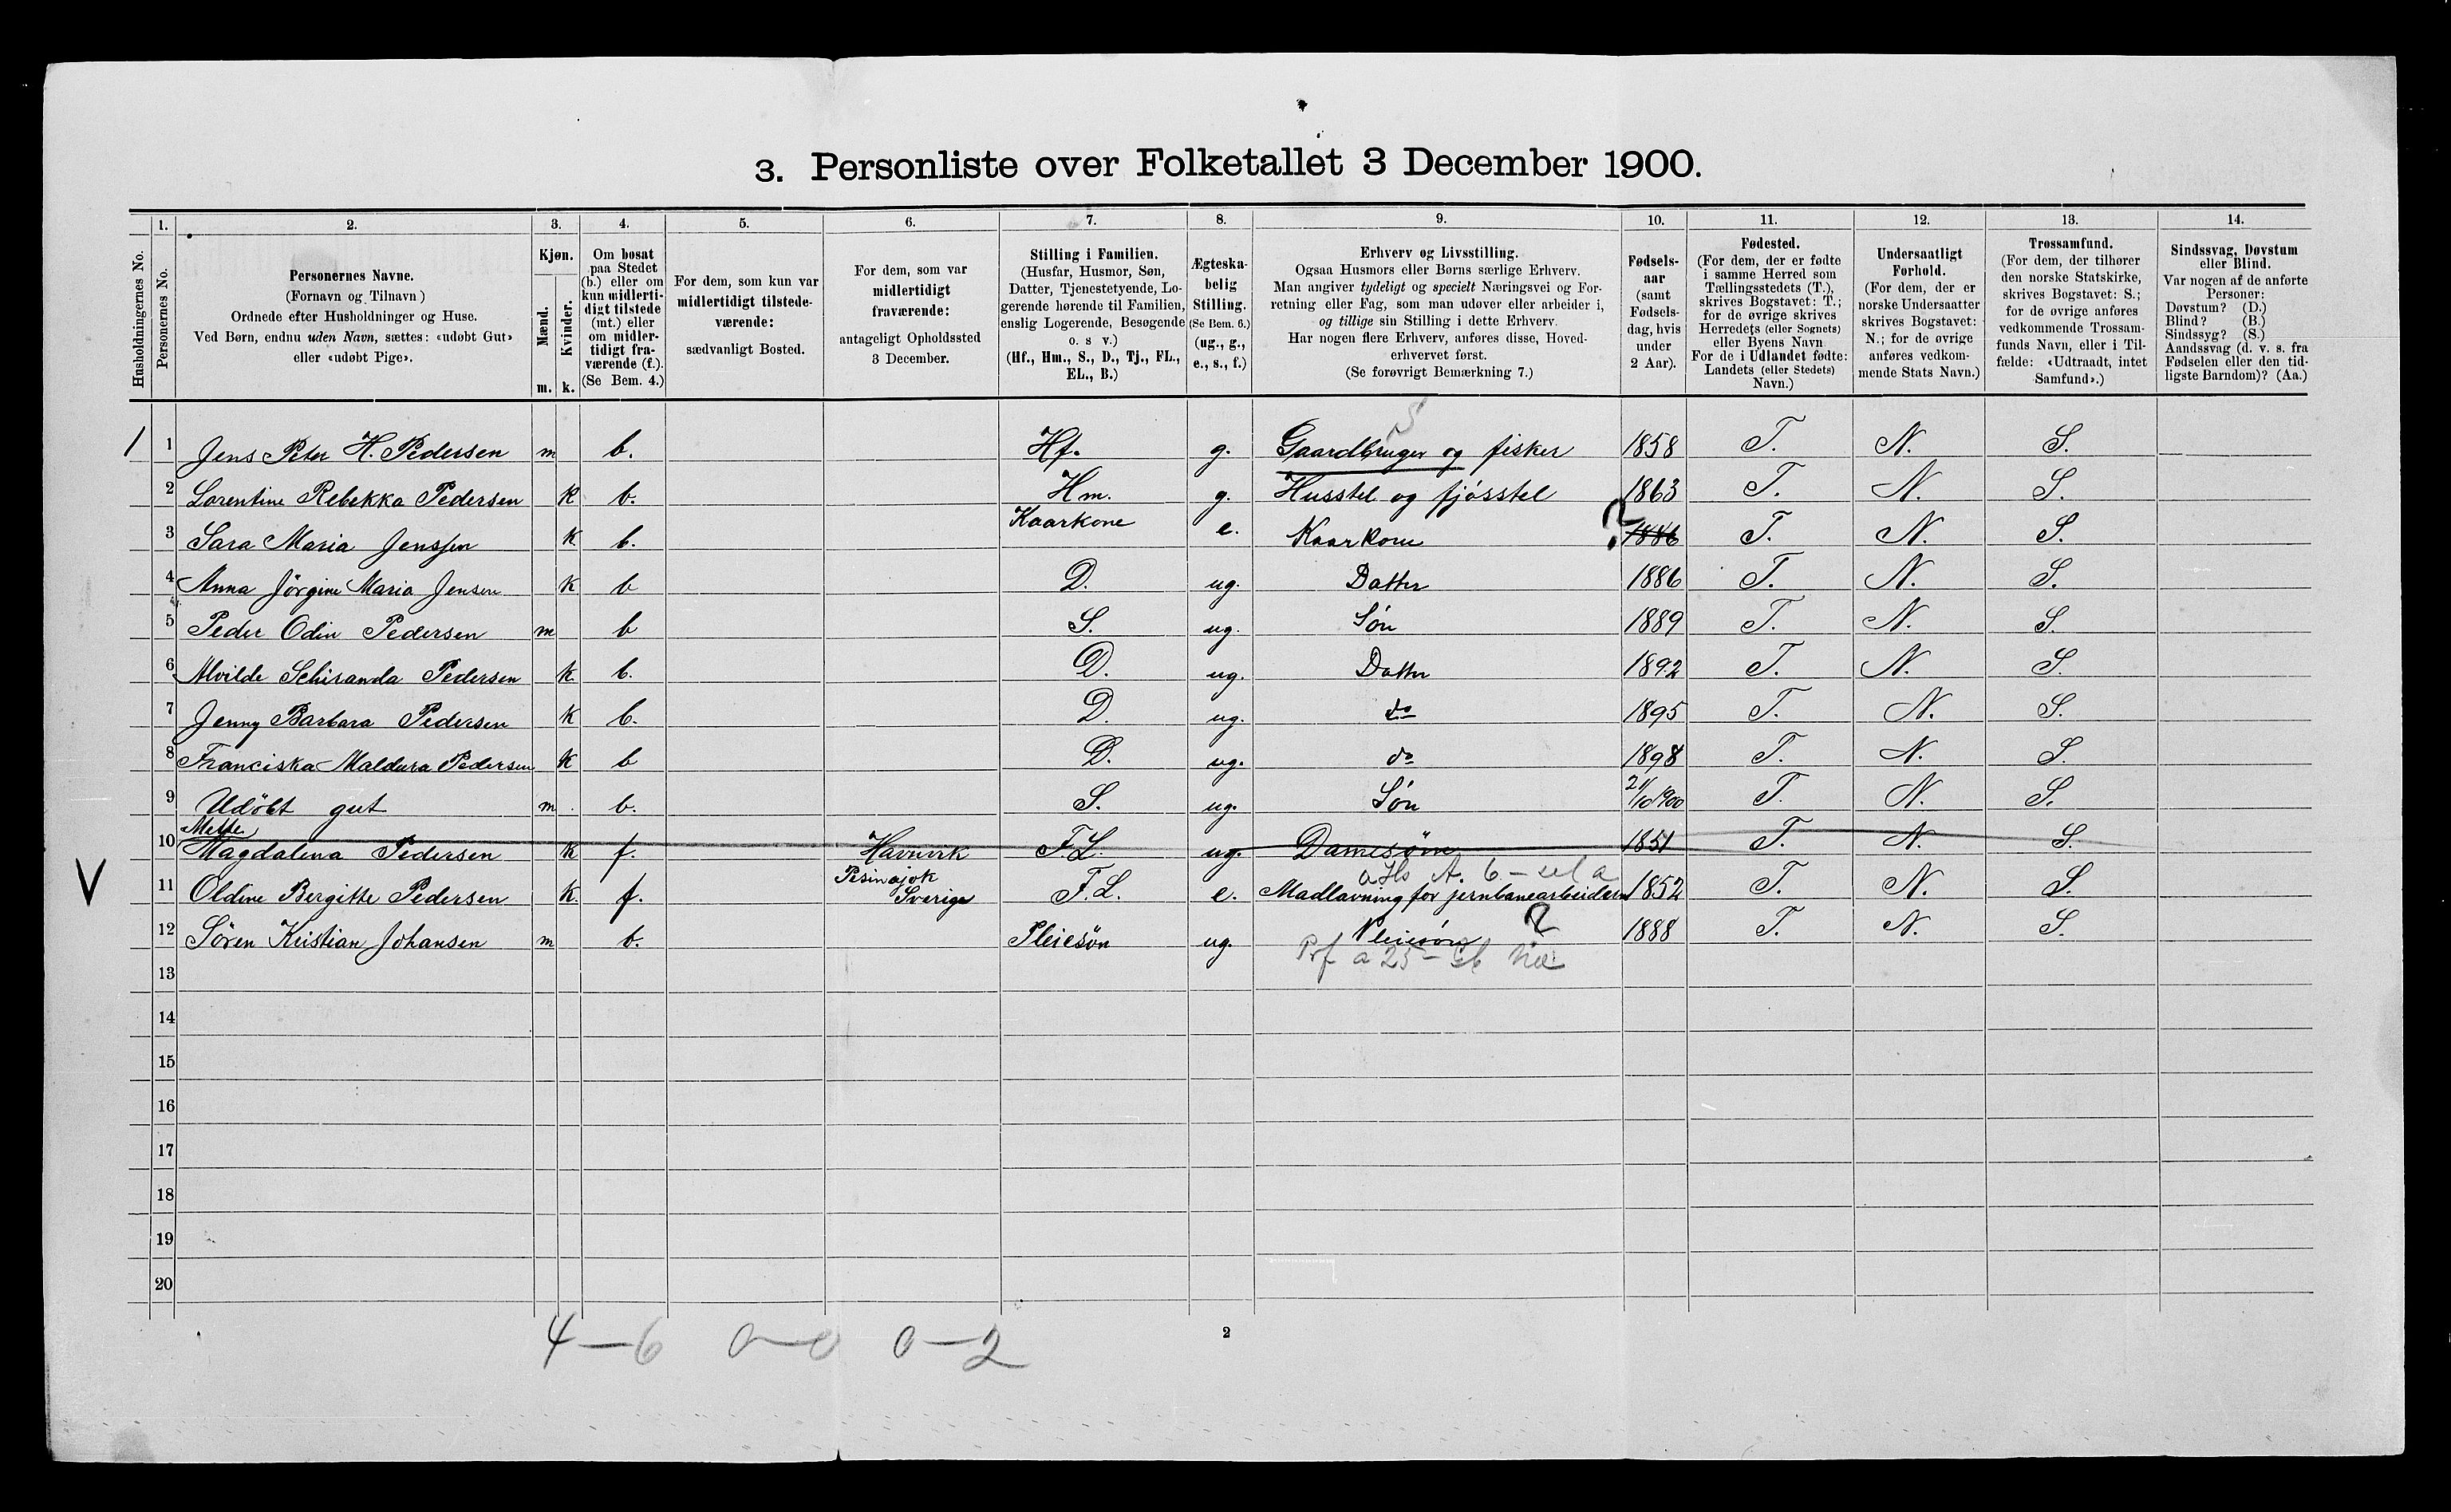 3. Personliste over Folketallet 3 December 1900.
1. 2. 3. 4. 5. 6. 7. 8. 9. 10. 11. 12. 13. 14.
Husholdningernes No.
Personernes No.
Personernes Navne.
(Fornavn og Tilnavn)
Ordnede efter Husholdninger og Huse.
Ved Børn, endnu uden Navn, sættes: «udøbt Gut»
eller «udøbt Pige».
Kjøn.
Mænd.
Kvinder.
m. k.
Om bosat
paa Stedet
(b.) eller om
kun midlerti-
digt tilstede
(mt.) eller
om midler-
tidigt fra-
værende (f.).
(Se Bem. 4.)
For dem, som kun var
midlertidigt tilstede-
værende:
sædvanligt Bosted.
For dem, som var
midlertidigt
fraværende:
antageligt Opholdssted
3 December.
Stilling i Familien.
(Husfar, Husmor, Søn,
Datter, Tjenestetyende, Lo-
gerende hørende til Familien,
enslig Logerende, Besøgende
o. s v.)
(Hf., Hm., S., D., Tj., FL.,
EL., B.)
Ægteska-
belig
Stilling.
(Se Bem. 6.)
(ug., g.,
e., s., f.)
Erhverv og Livsstilling.
Ogsaa Husmors eller Børns særlige Erhverv.
Man angiver tydeligt og specielt Næringsvei og For-
retning eller Fag, som man udøver eller arbeider i,
og tillige sin Stilling i dette Erhverv.
Har nogen flere Erhverv, anføres disse, Hoved-
erhvervet først.
(Se forøvrigt Bemærkning 7.)
Fødsels-
aar
(samt
Fødsels-
dag, hvis
under
2 Aar).
Fødested.
(For dem, der er fødte
i samme Herred som
Tællingsstedets (T.),
skrives Bogstavet: T.;
for de øvrige skrives
Herredets (eller Sognets)
eller Byens Navn
For de i Udlandet fødte:
Landets (eller Stedets)
Navn.)
Undersaatligt
Forhold.
(For dem, der er
norske Undersaatter
skrives Bogstavet:
N.; for de øvrige
anføres vedkom-
mende Stats Navn.)
Trossamfund.
(For dem, der tilhører
den norske Statskirke,
skrives Bogstavet: S.;
for de øvrige anføres
vedkommende Trossam-
funds Navn, eller i Til-
fælde: «Udtraadt, intet
Samfund».)
Sindssvag, Døvstum
eller Blind.
Var nogen af de anførte
Personer:
Døvstum? (D.)
Blind? (B.)
Sindssyg? (S.)
Aandssvag (d. v. s. fra
Fødselen eller den tid-
ligste Barndom)? (Aa.)
5
1 1 Jens Peter H. Pedersen m b. Hf. g. Gaardbruger og fisker 1858 T. N. S.
2 Lorentine Rebekka Pedersen K b. Hm. g. Husstel og fjösstel 1863 T. N. S.
3 Sara Maria Jenssen K b. Kaarkone e. Kaarkone ? 1886 T. N. S.
4 Anna Jörgine Maria Jensen K b D. ug. Datter 1886 T. N. S.
5 Peder Odin Pedersen m b S. ug. Sön 1889 T. N. S.
6 Alvilde Schisanda Pedersen K b. D. ug. Datter 1892 T. N. S.
7 Jenny Barbara Pedersen K b. D. ug. do 1895 T. N. S.
8 Franciska Maldura Pedersen K b D. ug. do 1898 T. N. S.
9 Udöbt gut m. b. S. ug. Sön 21/10 1900 T. N. S.
Mette
10 Magdalena Pedersen K f. Havnvik F.L. ug. Damesöm 1851 T. N. S.
V 11 Oldine Bergitte Pedersen K. f. Pesinajok Sverige F.L. e. Madlavning for jernbanearbeidere 1852 T. N. S.
12 Sören Kristian Johansen m b. Pleiesön ug. Pleiesön ? 1888 T. N. S.
13
14
15
16
17
18
19
20
4—6 0—0 0—2
2